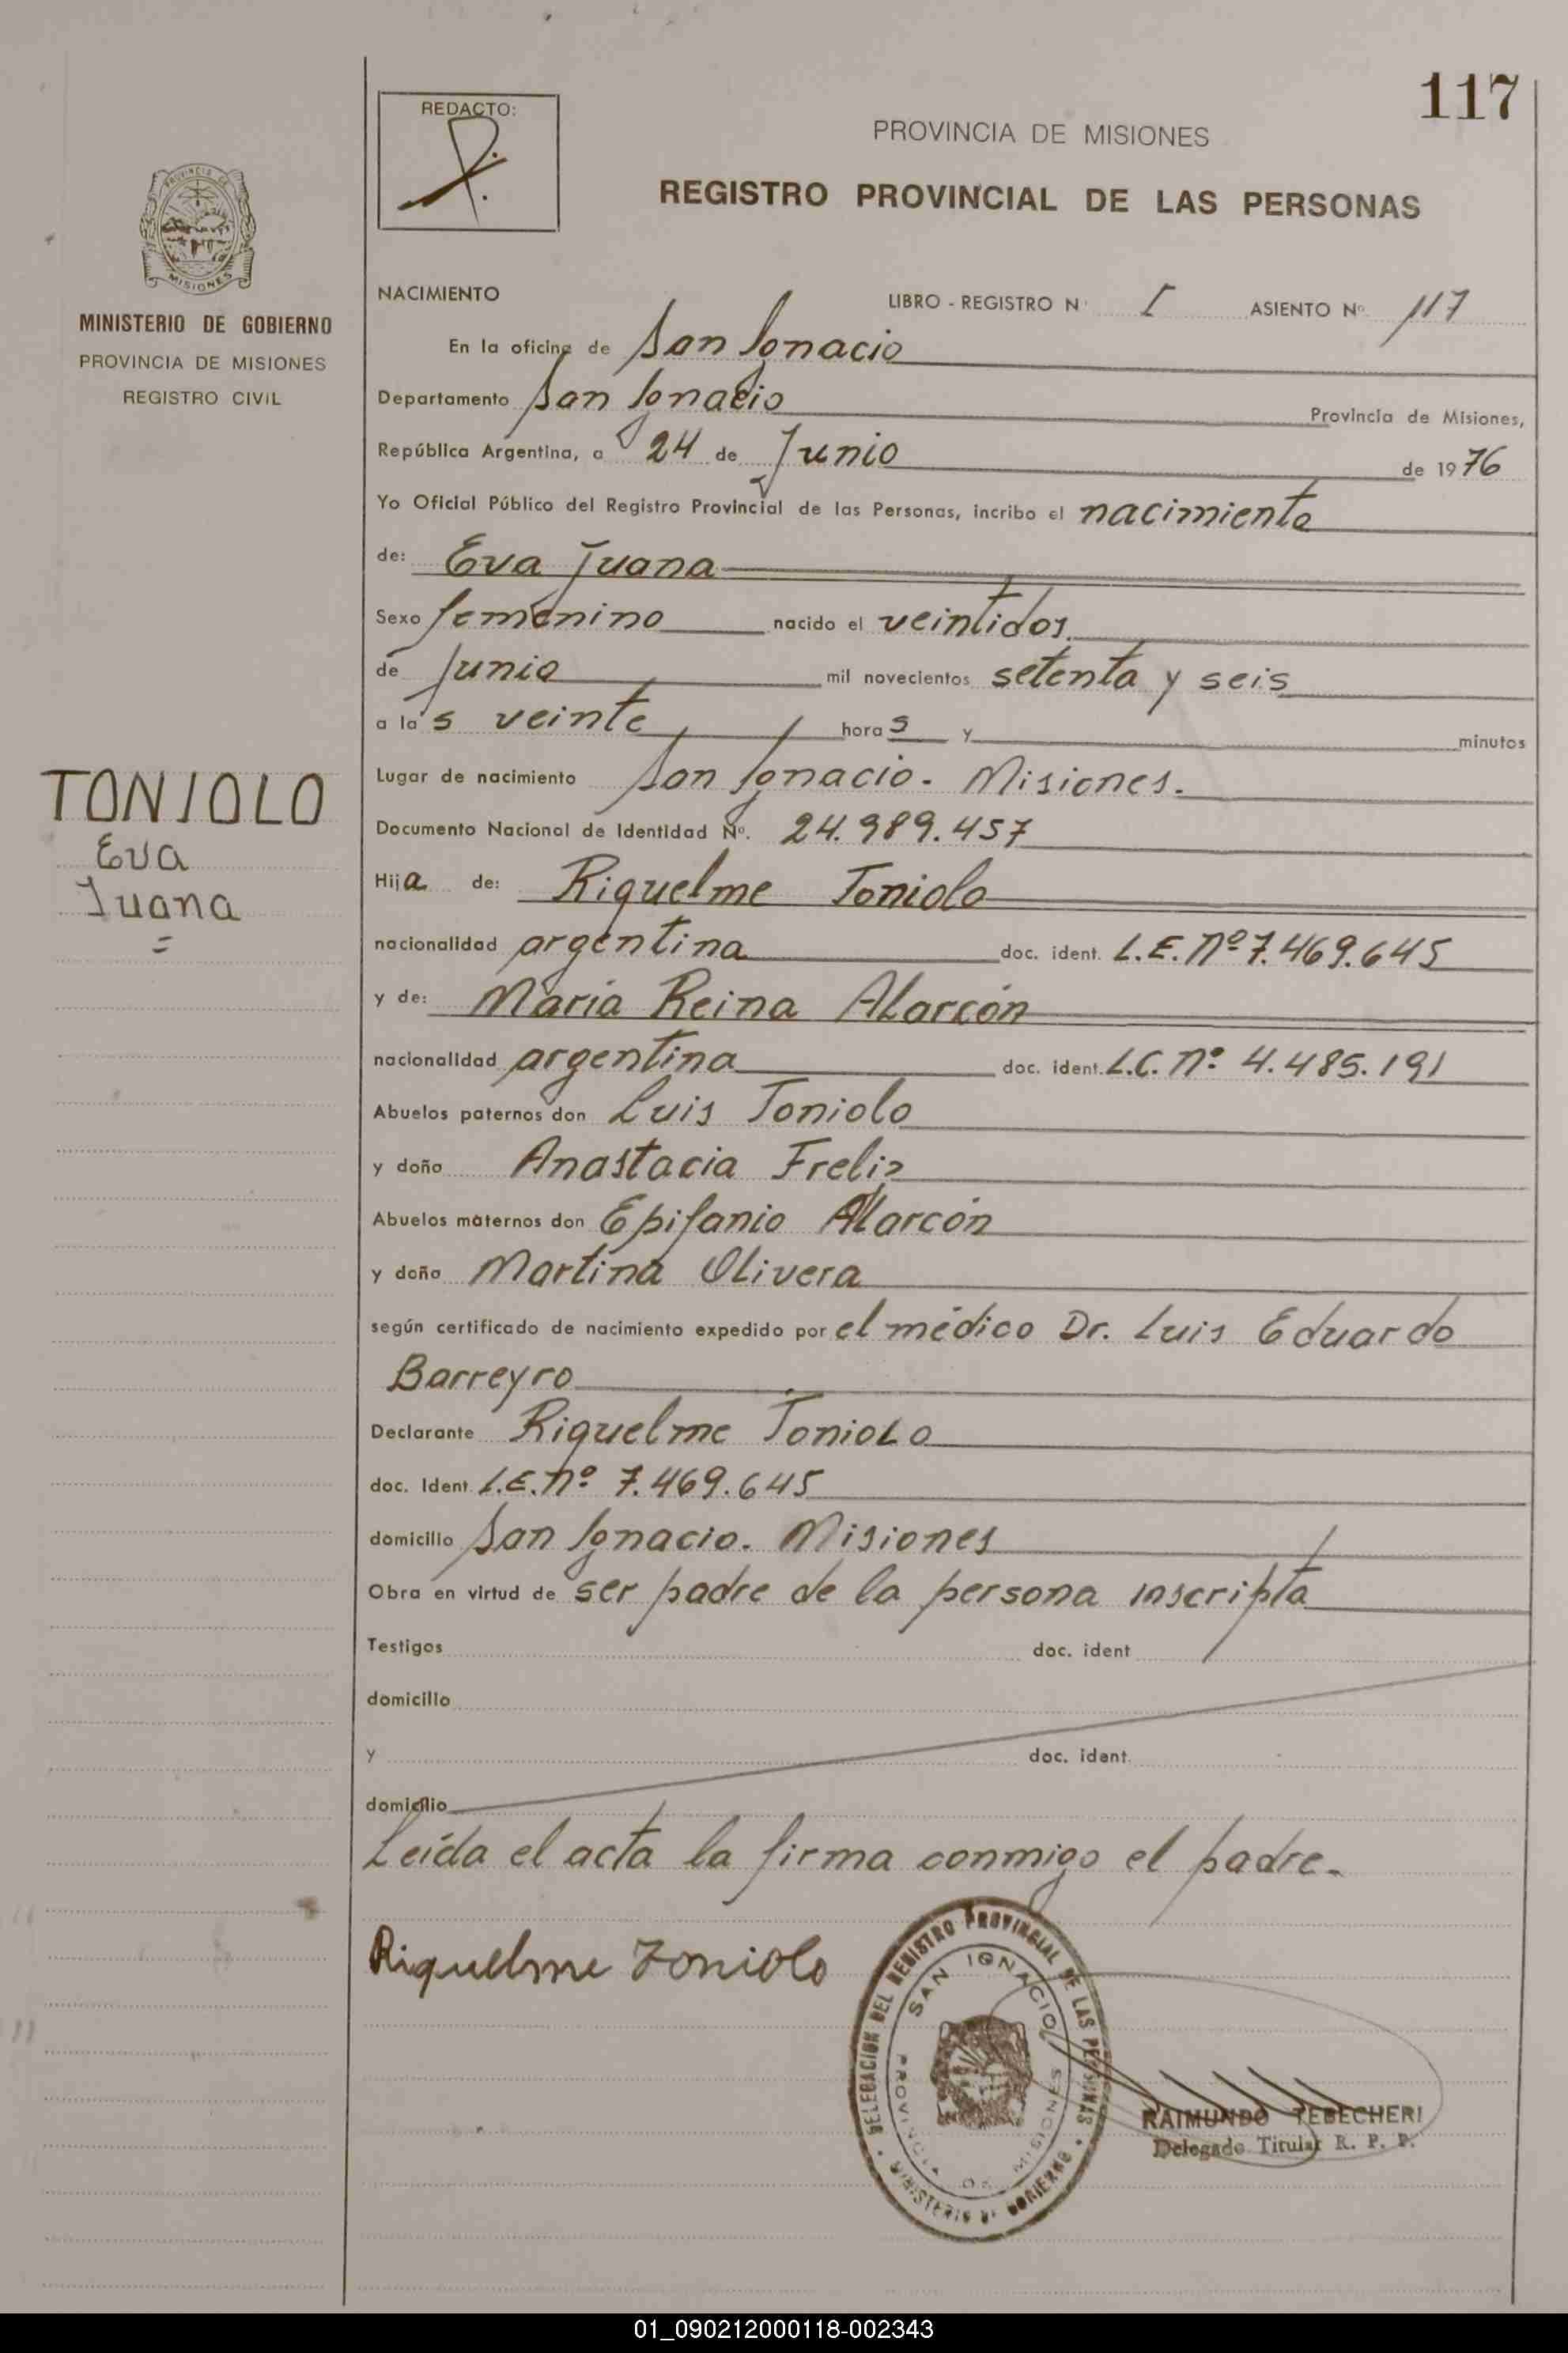 117
REDACTO:
PROVINCIA DE MISIONES
REGISTRO PROVINCIAL DE LAS PERSONAS
PROVINCIA DE
MISIONES
MINISTERIO DE GOBIERNO
PROVINCIA DE MISIONES
REGISTRO CIVIL
NACIMIENTO LIBRO - REGISTRO N° I ASIENTO N° 117
En la oficina de San Ignacio
Departamento San Ignacio Provincia de Misiones,
República Argentina, a 24 de Junio de 1976
Yo Oficial Público del Registro Provincial de las Personas, incribo el nacimiento
de: Eva Juana
Sexo femenino nacido el veintidos
de Junio mil novecientos setenta y seis
a las veinte horas y minutos
Lugar de nacimiento San Ignacio - Misiones.
TONIOLO
Eva
Juana
Documento Nacional de Identidad Nº. 24.989.457
Hija de: Riquelme Toniolo
nacionalidad argentina doc. ident. L.E. Nº 7.469.645
y de: María Reina Alarcón
nacionalidad argentina doc. ident. L.C. Nº 4.485.191
Abuelos paternos don Luis Toniolo
y doña Anastacia Freliz
Abuelos maternos don Epifanio Alarcón
y doña Martina Olivera
según certificado de nacimiento expedido por el médico Dr. Luis Eduardo
Barreyro
Declarante Riquelme Toniolo
doc. Ident L.E. Nº 7.469.645
domicilio San Ignacio. Misiones
Obra en virtud de ser padre de la persona inscripta
Testigos doc. ident
domicilio
y doc. ident.
domicilio
Leída el acta la firma conmigo el padre.
Riquelme Toniolo
DELEGACION DEL REGISTRO PROVINCIAL DE LAS PERSONAS
SAN IGNACIO
PROVINCIA DE MISIONES
MINISTERIO DE GOBIERNO
RAIMUNDO TEBECHERI
Delegado Titular R. P. P.
01_090212000118-002343